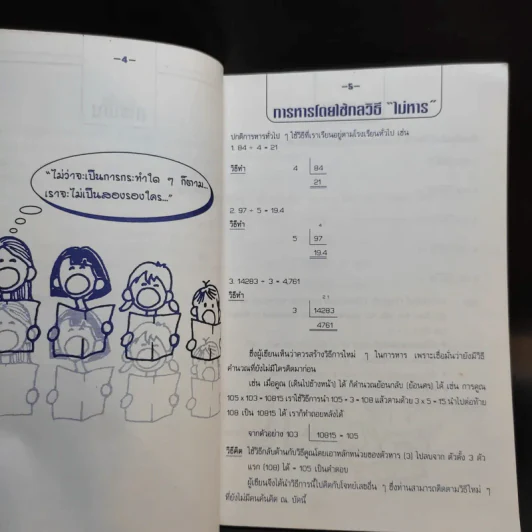 -4-
"ไม่ว่าจะเป็นการกระทำใด ๆ ก็ตาม...
เราจะไม่เป็นสองรองใคร..."
-5-
การหารโดยใช้กลวิธี "ไม่หาร"
ปกติการหารทั่วไป ๆ ใช้วิธีที่เราเรียนอยู่ตามโรงเรียนทั่วไป เช่น
1. 84 ÷ 4 = 21
วิธีทำ 4 84
21
2. 97 ÷ 5 = 19.4
วิธีทำ
4
5 97
19.4
3. 14283 ÷ 3 = 4,761
วิธีทำ
2 1
3 14283
4761
ซึ่งผู้เขียนเห็นว่าควรสร้างวิธีการใหม่ ๆ ในการหาร เพราะเชื่อมั่นว่ายังมีวิธี
คำนวณที่ยังไม่มีใครคิดมาก่อน
เช่น เมื่อคูณ (เดินไปข้างหน้า) ได้ ก็คำนวณย้อนกลับ (ย้อนศร) ได้ เช่น การคูณ
105 x 103 = 10815 เราใช้วิธีการนำ 105 + 3 = 108 แล้วตามด้วย 3 x 5 = 15 นำไปต่อท้าย
108 เป็น 10815 ได้ เราก็ทำถอยหลังได้
จากตัวอย่าง 103 10815 = 105
วิธีคิด ใช้วิธีกลับด้านกับวิธีคูณโดยเอาหลักหน่วยของตัวหาร (3) ไปลบจาก ตัวตั้ง 3 ตัว
แรก (108) ได้ = 105 เป็นคำตอบ
ผู้เขียนจึงได้นำวิธีการนี้ไปคิดกับโจทย์เลขอื่น ๆ ซึ่งท่านสามารถติดตามวิธีใหม่ ๆ
ที่ยังไม่มีคนค้นคิด ณ. บัดนี้